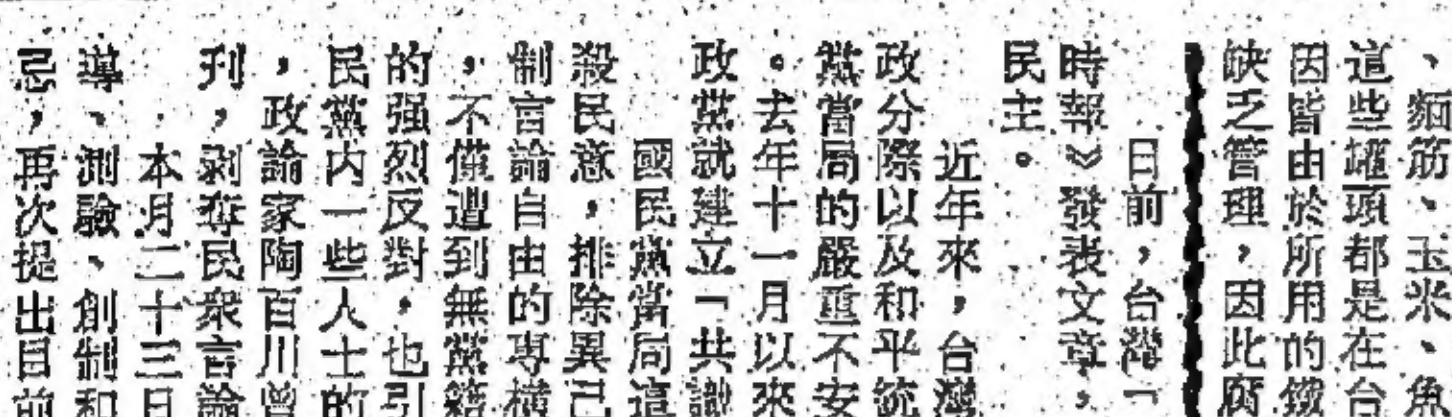 、麵筋、玉米、角
這些罐頭都是在台
因皆由於所用的鐵
缺乏管理，因此腐
日前，台灣「
時報》發表文章，
民主。
近年來，台灣
政分際以及和平統
黨當局的嚴重不安
。去年十一月以來
政黨就建立「共識
國民黨當局這
殺民意，排除異己
制言論自由的專橫
，不僅遭到無黨籍
的强烈反對，也引
民黨內一些人士的
，政論家陶百川曾
刊，剥奪民衆言論
本月二十三日
導、測驗、創制和
忌，再次提出目前